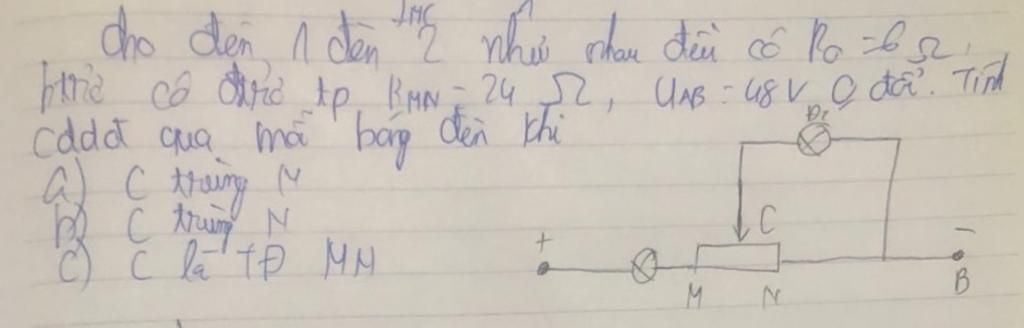 Cho đèn 1 đèn 2 như nhau đều có R₀ = 6 Ω,
btrở có đtrở tp RMN = 24 Ω, UAB = 48 V O đổi. Tính
cdđđ qua mỗi bóng đèn khi
a) C trùng M
b) C trùng N
c) C là TĐ MN
+
C
M N
−
B